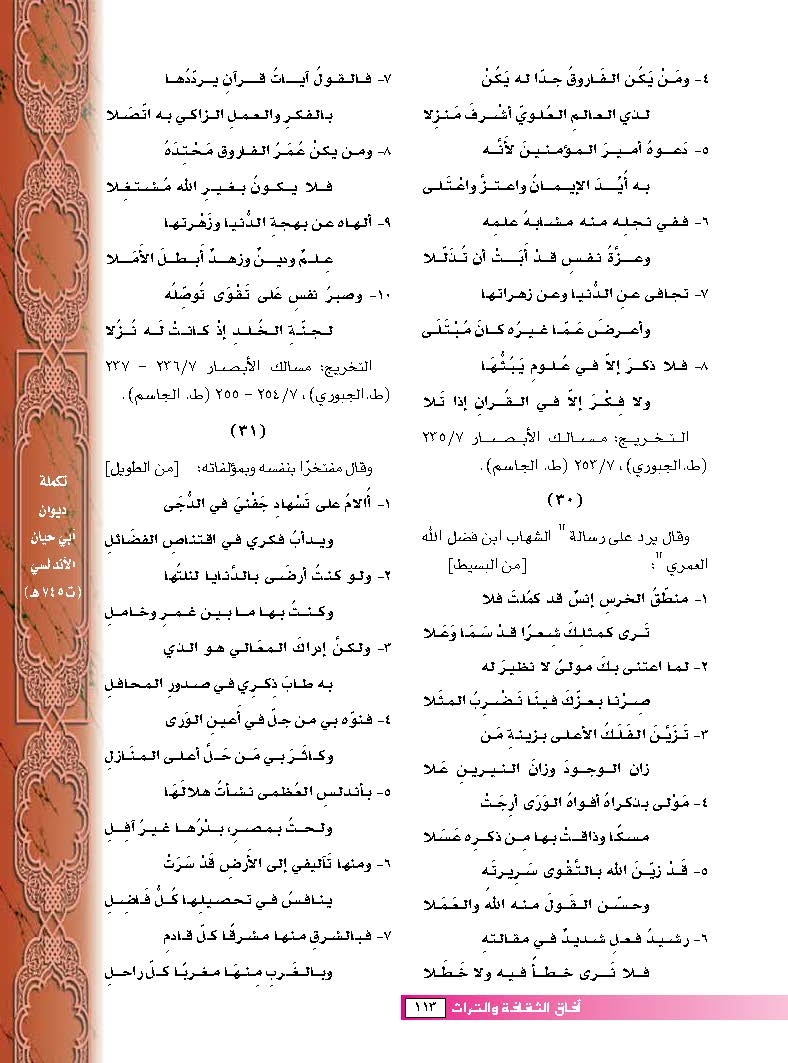 ٤- ومَنْ يَكُن الفَاروقُ جدّا له يَكُنْ
لدي العالمِ العُلويّ أشْرفَ مَنزِلا
٥- دَعوهُ أميرَ المؤمنينَ لأنَّه
به أُيِّدَ الإيمانُ واعتزَّ واعْتَلى
٦- ففي نجلِه منه مشابهُ علمِه
وعزَّةُ نفسٍ قدْ أبَتْ أن تُذَلّلا
٧- تجافى عنِ الدُّنيا وعن زهراتها
وأعرضَ عَمّا غيرُه كانَ مُبْتَلَى
٨- فلا ذكرَ إلاّ في عُلومٍ يَبُثُّهَا
ولا فِكْرَ إلاّ في القُرانِ إذا تَلا
التخريج: مسالك الأبصار ٢٣٥/٧
(ط.الجبوري)، ٢٥٣/٧ (ط. الجاسم).
(٣٠)
وقال يرد على رسالة " الشهاب ابن فضل الله
العمري ": [من البسيط]
١- منطّقُ الخرسِ إنسٌ قد كملتَ فلا
تَرى كمثلِكَ شِعرًا قدْ سَمَا وَعَلا
٢- لما اعتنى بكَ مولىً لا نظيرَ له
صِرْنا بعزّكَ فينَا نَضْرِبُ المثَلا
٣- تَزَيَّنَ الفَلَكُ الأعلى بزينةِ مَن
زان الوجودَ وزانَ النيرينِ عَلا
٤- مَوْلى بذكراهُ أفواهُ الوَرَى أرِجَتْ
مسكًا وذاقتْ بها مِن ذكرِه عَسَلا
٥- قَدْ زيّنَ الله بالتَّقْوى سَرِيرتَه
وحسّن القَولَ منه اللهُ والعَمَلا
٦- رشيدُ فعلٍ شديدٌ في مقالته
فلا تَرى خطأً فيه ولا خَطَلا
٧- فالقولُ آياتُ قرآنٍ يردّدُها
بالفكرِ والعملِ الزاكي به اتّصَلا
٨- ومن يكنْ عُمَرُ الفاروق مَحْتِدَهُ
فلا يكونُ بغيرِ الله مُشتغِلا
٩- ألهاه عن بهجةِ الدُّنيا وزَهْرتها
عِلمٌ ودينٌ وزهدٌ أبطلَ الأمَلا
١٠- وصبرُ نفسٍ عَلى تَقْوَى تُوصّلُه
لجنّةِ الخُلدِ إذْ كانتْ لَه نُزُلا
التخريج: مسالك الأبصار ٢٣٦/٧ – ٢٣٧
(ط.الجبوري)، ٢٥٤/٧ – ٢٥٥ (ط. الجاسم).
(٣١)
وقال مفتخرًا بنفسه وبمؤلفاته: [من الطويل]
١- أُالامُ على تَسْهادِ جَفْنيَ في الدُّجَى
ويدأبُ فكري في اقتناصِ الفضَائلِ
٢- ولو كنتُ أرضَى بالدَّنايا لنلتُها
وكنتُ بها ما بين غمرٍ وخاملِ
٣- ولكنَّ إدراكَ المعَالي هو الذي
به طابَ ذكرِي في صدورِ المحافلِ
٤- فنوّه بي من جلّ في أعينِ الوَرى
وكاثَرَ بي مَن حَلَّ أعلى المنَازلِ
٥- بأندلسِ العُظمى نشأتُ هلالَهَا
ولحتُ بمصرٍ، بدْرُها غيرُ آفِلِ
٦- ومنها تَآليفي إلى الأرضِ قَدْ سَرَتْ
ينافسُ في تحصيلِها كُلُّ فَاضِلِ
٧- فبالشرقِ منها مشرقًا كلّ قادمٍ
وبالغَربِ مِنهَا مغربًا كلّ راحلِ
تكملة
ديوان
أبي حيان
الأندلسي
(ت٧٤٥هـ)
آفاق الثقافة والتراث ١١٣